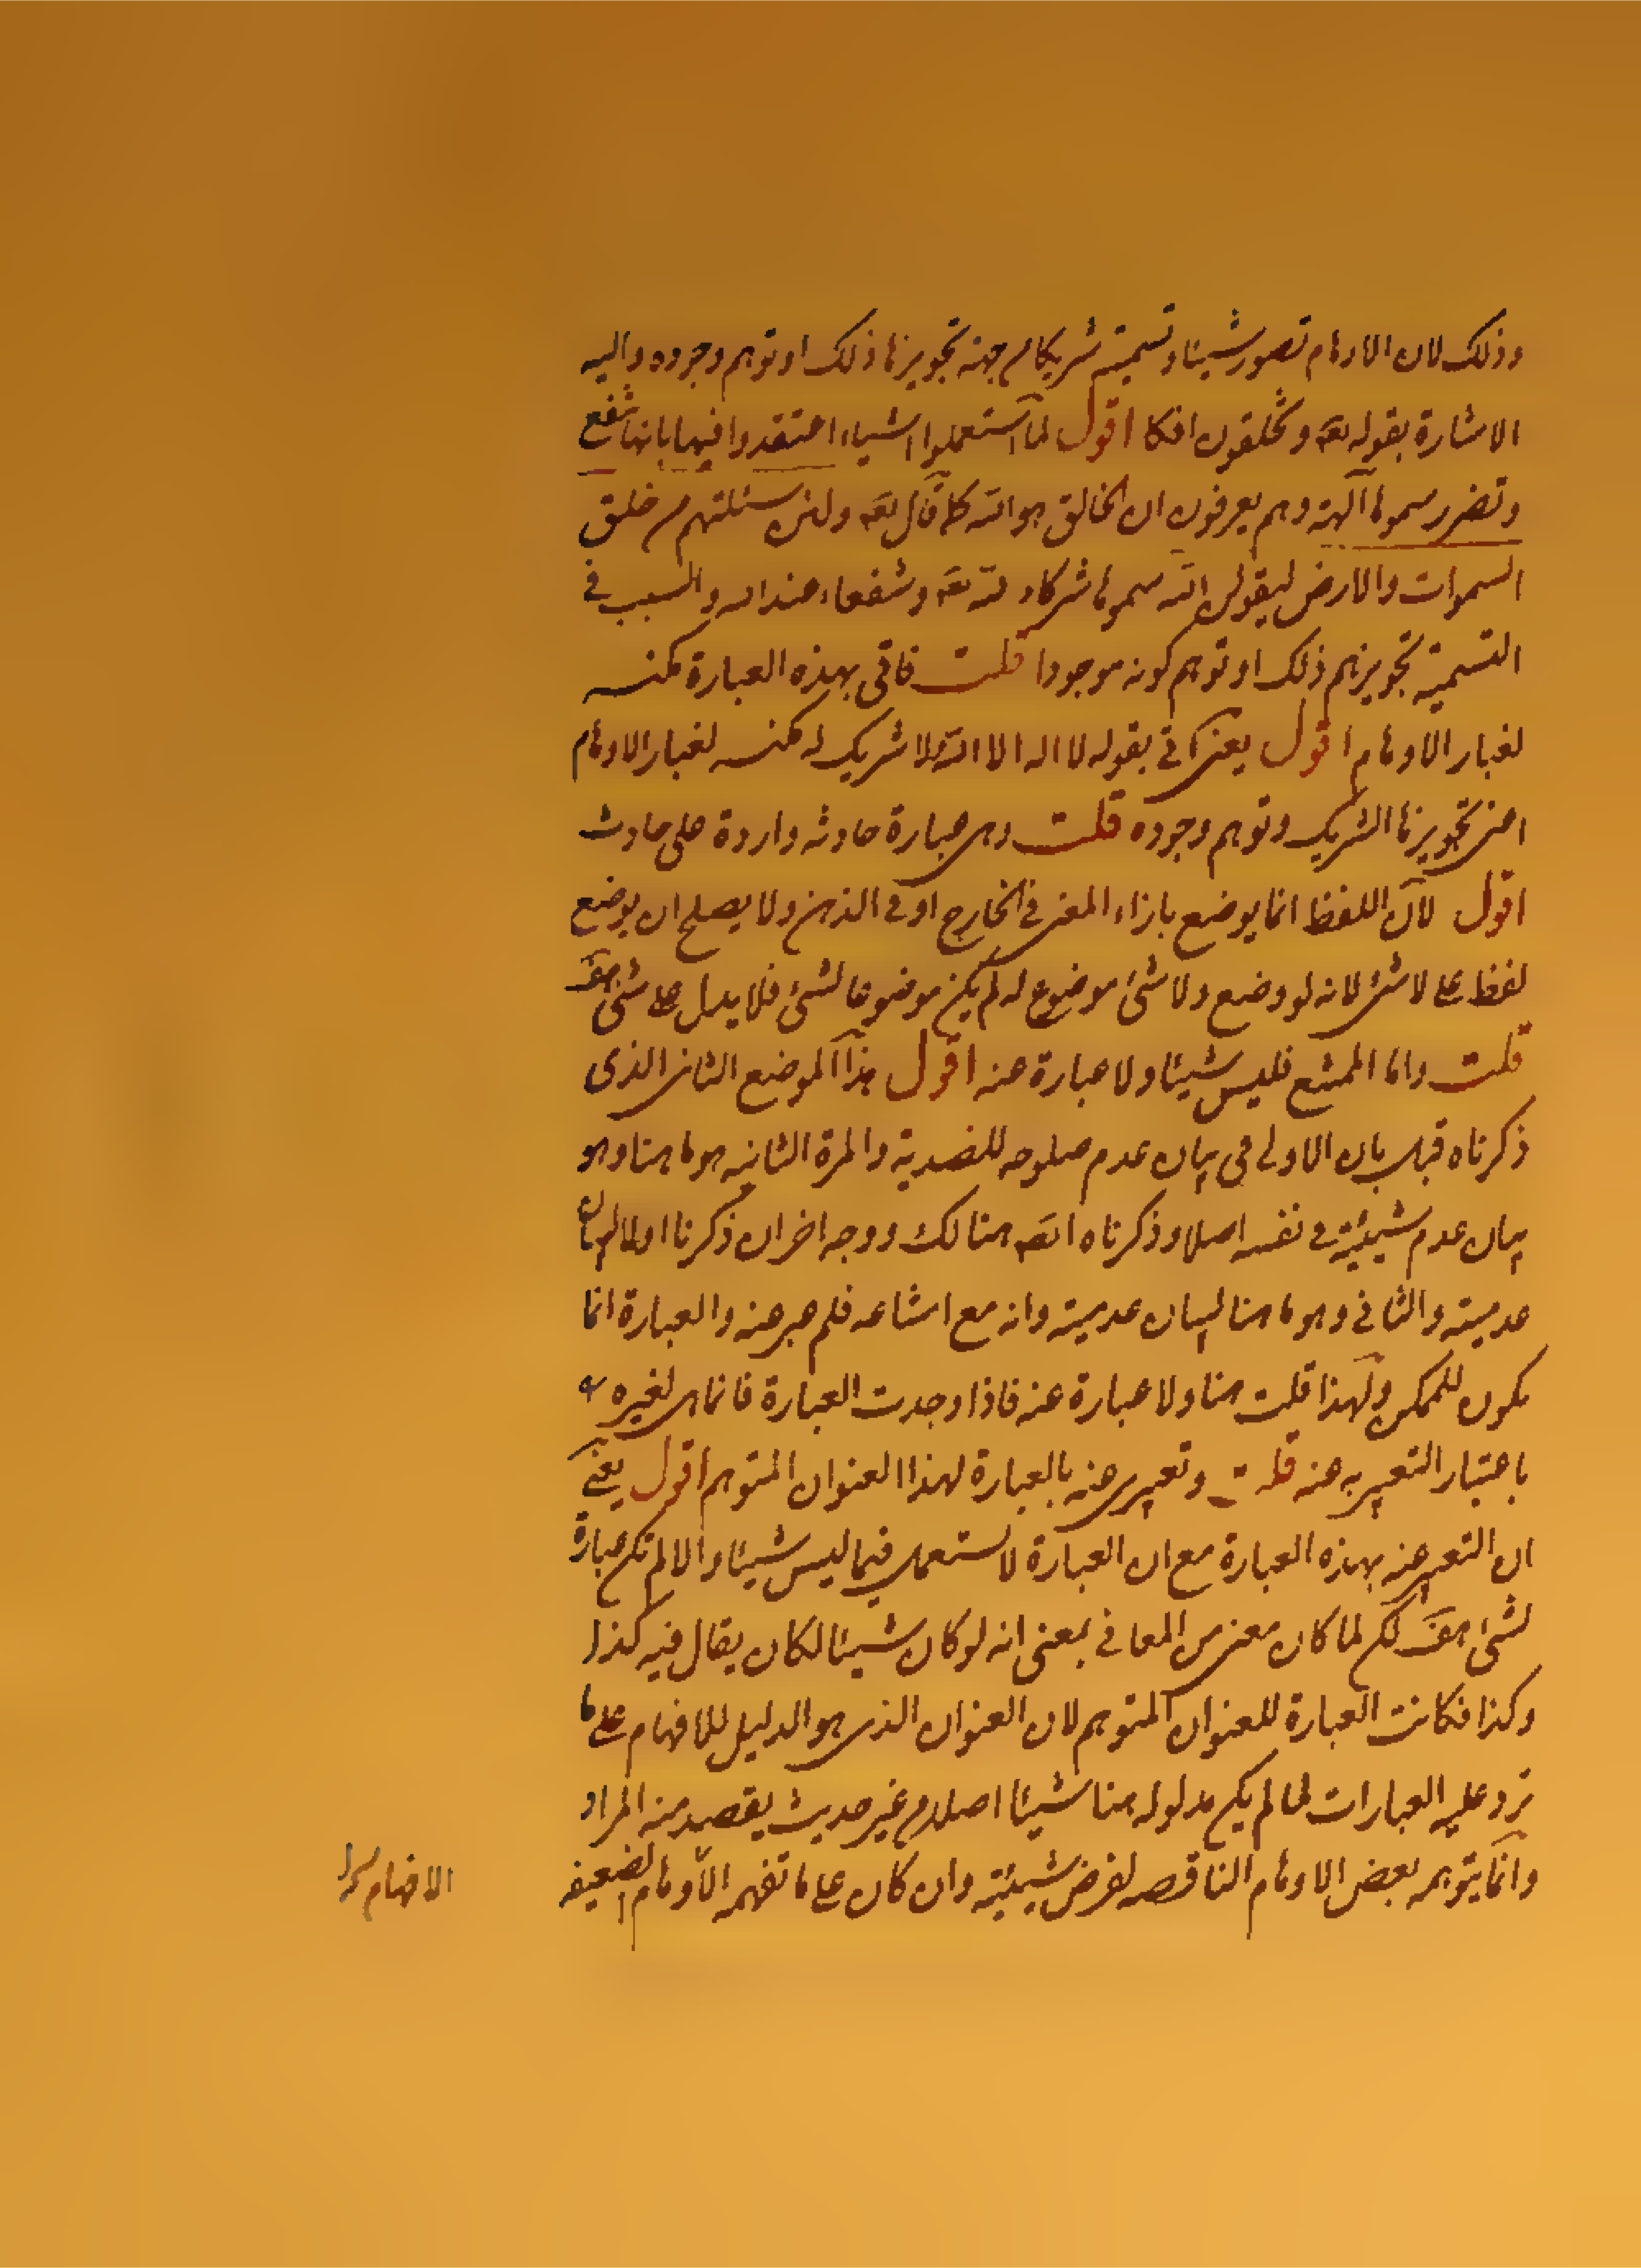 وذلك لان الاوهام تصور شيئا وتسميه شريكا من جهة تجويزها ذلك او توهم وجوده واليه
الاشارة بقوله تعالى وتخلقون افكا اقول لما استعملوا اشياء اعتقدوا فيها بانها تنفع
وتضر سموها آلهة وهم يعرفون ان الخالق هو الله كما قال تعالى ولئن سئلتهم من خلق
السموات والارض ليقولن الله سموها شركاء لله تعالى وشفعاء عند الله والسبب في
التسمية تجويزهم ذلك او توهم كونه موجودا قلت فاتى بهذه العبارة كنسه
لغبار الاوهام اقول يعنى اتى بقوله لا اله الا الله لا شريك له كنسه لغبار الاوهام
اعنى تجويزها الشريك وتوهم وجوده قلت وهى عبارة حادثه واردة على حادث
اقول لان اللفظ انما يوضع بازاء المعنى في الخارج او في الذهن ولا يصلح ان يوضع
لفظ على لا شئ لانه لو وضع ولا شئ موضوع له لم يكن موضوعا لشئ فلا يدل على شئ هف
قلت واما الممتنع فليس شيئا ولا عبارة عنه اقول هذا الموضع الثانى الذى
ذكرناه قبل بان الاولى في بيان عدم صلوحه للضدية والمرة الثانيه هو ما هنا وهو
بيان عدم شيئيته في نفسه اصلا وذكرناه هنالك ووجه اخر ان ذكرنا اولا لبيان
عدميته والثاني وهو ما هنا لبيان عدميته وانه مع امتناعه فلم عبر عنه والعبارة انما
يكون للممكن ولهذا قلت هنا ولا عبارة عنه فاذا وجدت العبارة فانما هى لغيره
باعتبار التعبير به عنه قلت وتعبيرى عنه بالعبارة لهذا العنوان المتوهم اقول يعنى
ان التعبير عنه بهذه العبارة مع ان العبارة لا تستعمل فيما ليس شيئا والا لم تكن عبارة
لشئ هف لكن لما كان معنى من المعاني بمعنى انه لو كان شيئا لكان يقال فيه كذا
وكذا فكانت العبارة للعنوان المتوهم لان العنوان الذى هو الدليل للافهام على ما
ترد عليه العبارات لما لم يكن مدلوله هنا شيئا اصلا من غير حديث يقصد منه المراد
وانما يتوهمه بعض الاوهام الناقصه لفرض شيئيته وان كان على ما تفهمه الاوهام الضعيفه
الافهام